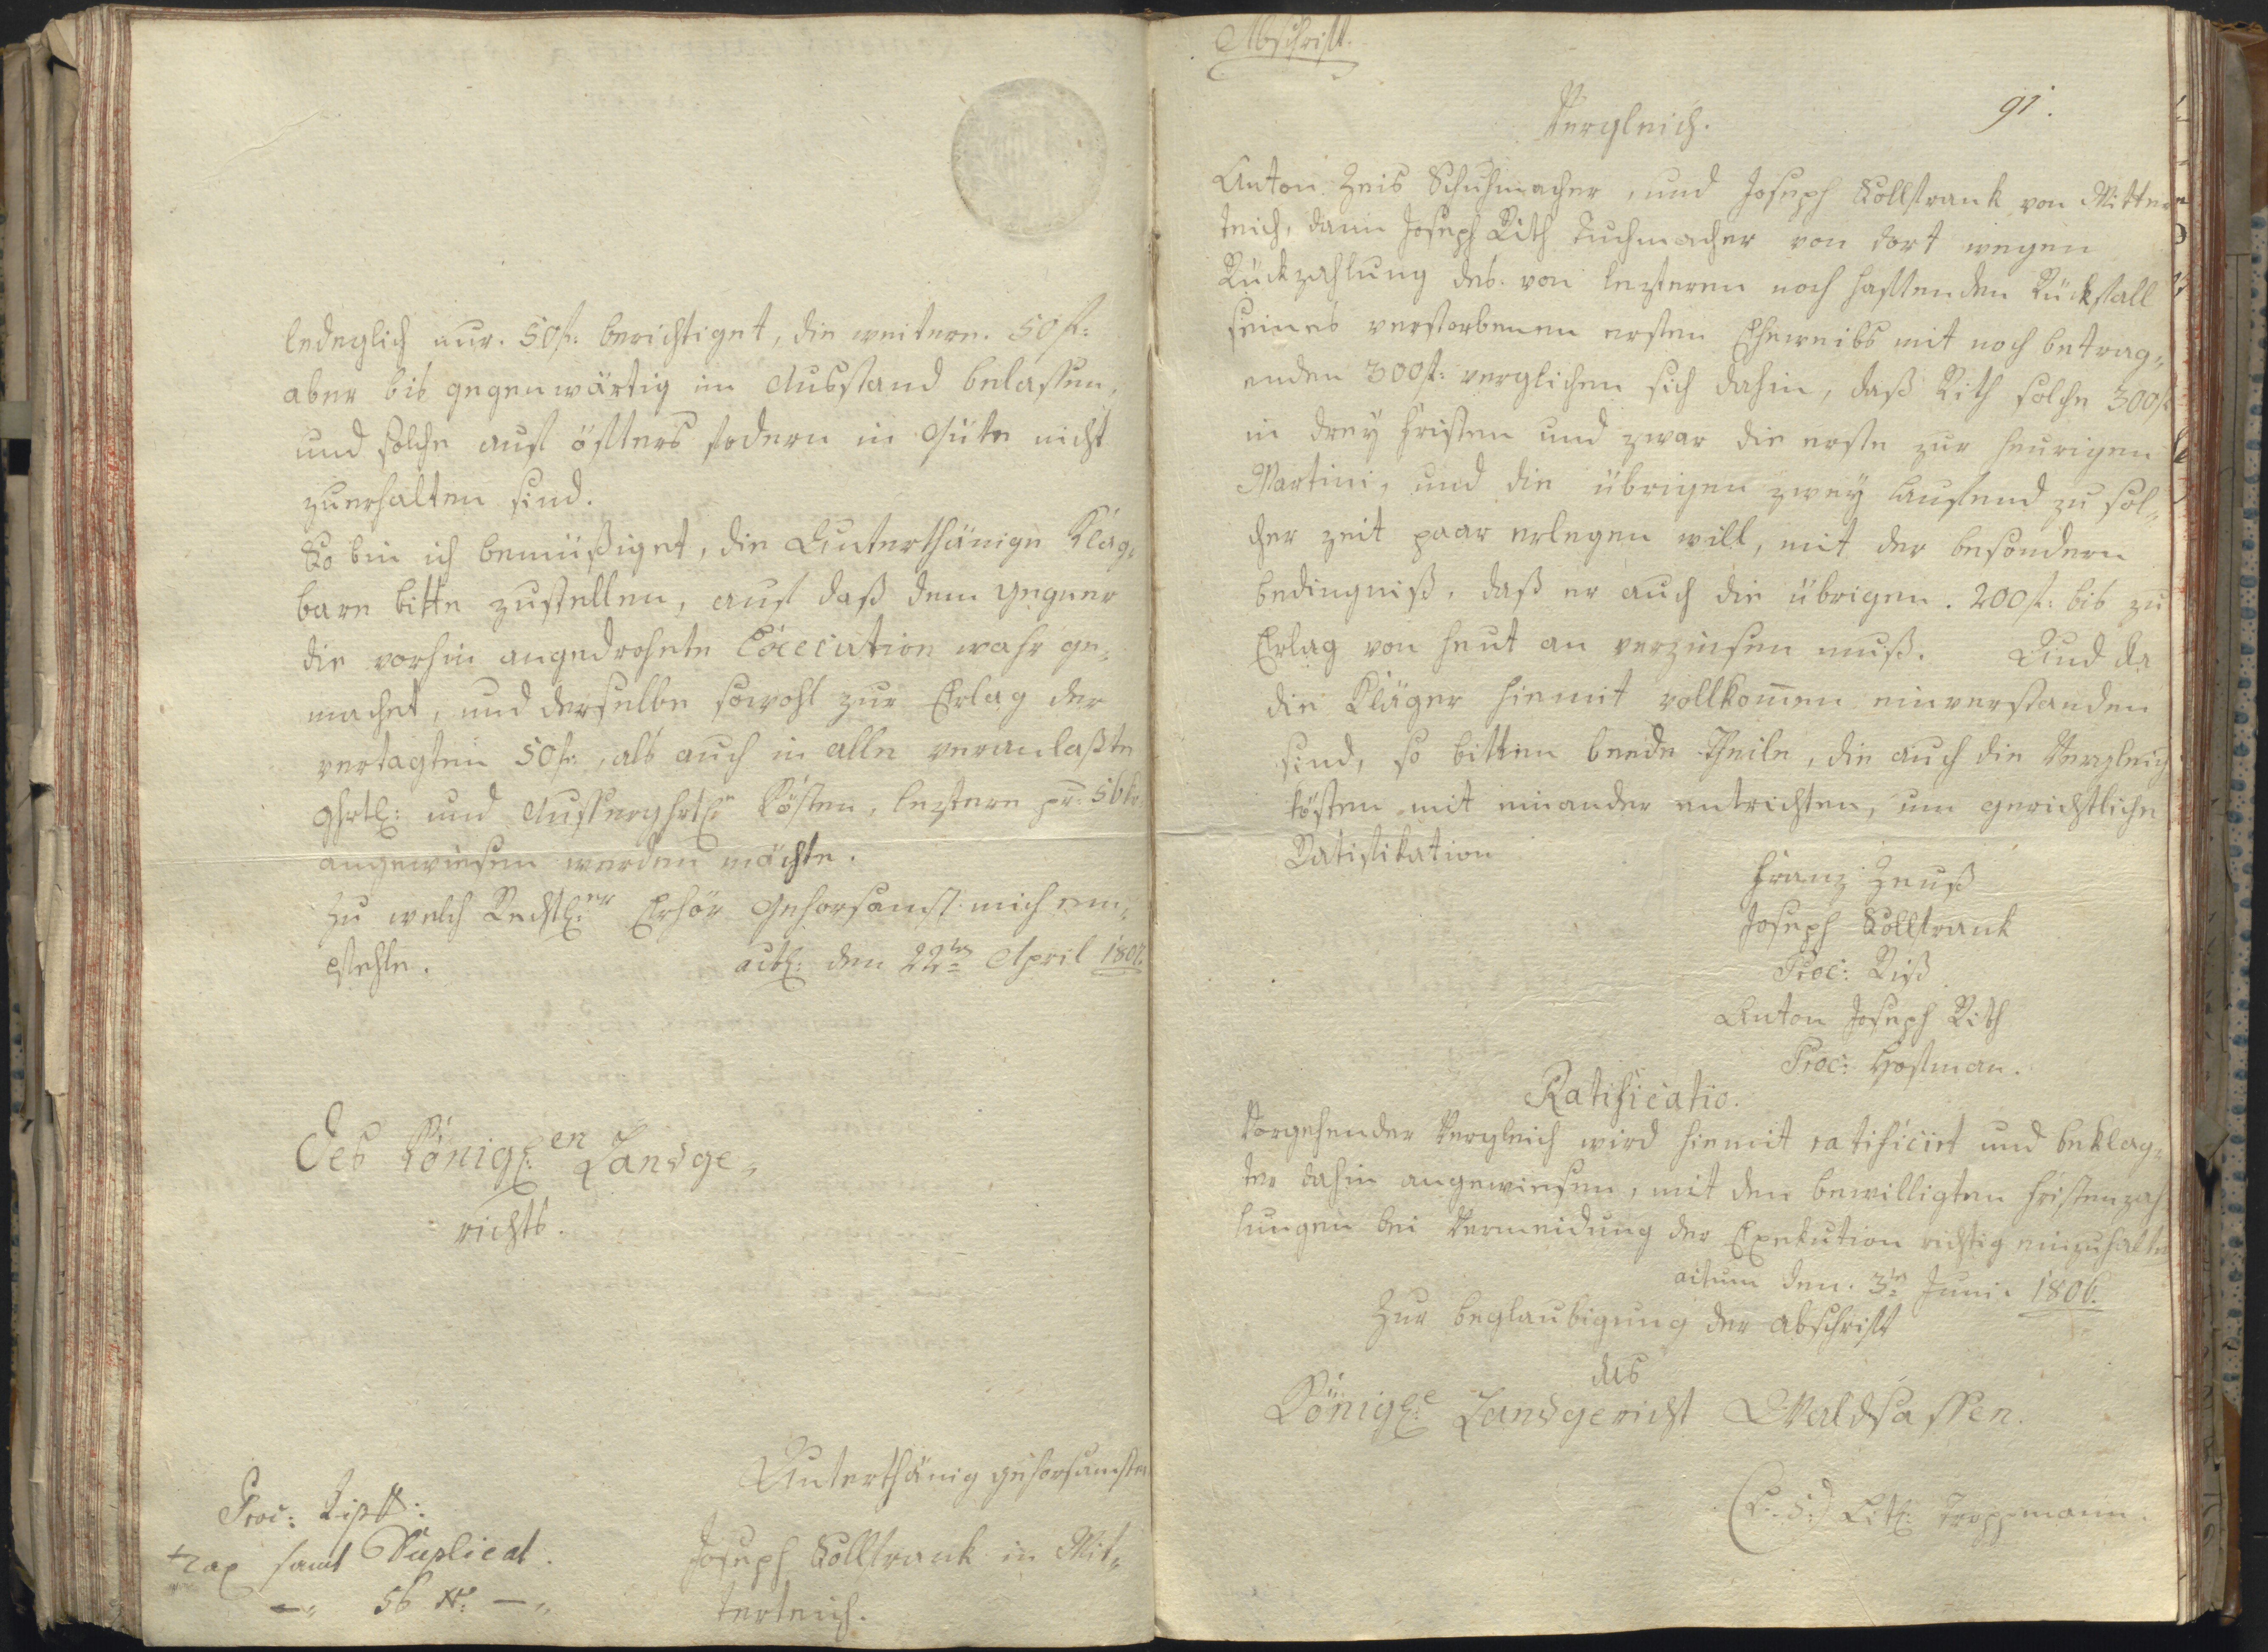 ledeglich nur. 50 f: berichtiget, die weitere. 50 f:
aber bis gegenwärtig im Ausstand belassen,
und solche auf öfters fodern in Güte nicht
zuerhalten sind.
So bin ich bemüßiget, die Unterthänige Klag„
bare bitte zustellen, auf daß dem gegner
die vorhin angedrohete Execution wahr ge„
machet, und derselbe sowohl zur Erlag der
vertagten 50 f:, als auch in alle veranlaßte
ghrtl: und Außerghrtl:n Kösten, leztere pr: 56 kr
angewiesen werden möchte.
Zu welch Rechtl:er Erhör Gehorsamst mich em„
pfehle.
actl: den 22ten April 1807.
Des Königl:en Landge„
richts.
Unterthänig gehorsamster
Joseph Kollfrank in Mit„
terteich.
Proc:
Tax samt Duplicat.
—„ 56 xr: —„
Abschrift.
91.
Vergleich.
Anton Zeis Schuhmacher, und Joseph Kollfrank von Mitter
teich, dann Joseph Rith Tuchmacher von dort wegen
Rückzahlung des von lezteren noch haftenden Rückfall
seines verstorbenen ersten Eheweibs mit noch betrag„
enden 300 f: verglichen sich dahin, daß Rith solche 300 f
in drey Fristen und zwar die erste zur heurigen
Martini, und die übrigen zwey laufend zu sol„
cher zeit paar erlegen will, mit der besondern
bedingniß, daß er auch die übrigen. 200 f: bis zu
Erlag von heut an verzinsen muß. Und da
die Kläger hiemit vollkom̄en einverstanden
sind, so bitten beede Theile, die auch die Vergleich
kösten mit einander entrichten, um gerichtliche
Ratifikation
Franz Zeuß
Joseph Kollfrank
Proc: Riß
Anton Joseph Rith
Proc: Hofman.
Ratificatio.
Vorgehender Vergleich wird hiemit ratificirt und beklag„
ter dahin angewiesen, mit den bewilligten Fristenzah
lungen bei Vermeidung der Exekution richtig einzuhalten
actum den. 3ten Juni. 1806.
Zur beglaubigung der Abschrift
das
Königl:e Landgericht Waldsassen.
(L. S.) Troppmann.